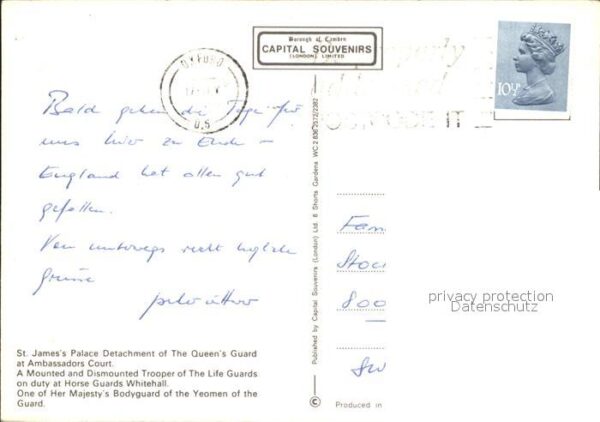 Borough of Camden
CAPITAL SOUVENIRS
(LONDON) LIMITED
OXFORD
10½P
Bald gehen die Tage für
uns hier zu Ende –
England hat allen gut
gefallen.
Von unterwegs recht herzliche
Grüsse
Published by Capital Souvenirs (London) Ltd. 8 Shorts Gardens WC.2 836 2572/2382
Fam
Stoc
800
privacy protection
Datenschutz
St. James's Palace Detachment of The Queen's Guard
at Ambassadors Court.
A Mounted and Dismounted Trooper of The Life Guards
on duty at Horse Guards Whitehall.
One of Her Majesty's Bodyguard of the Yeomen of the
Guard.
©
Produced in